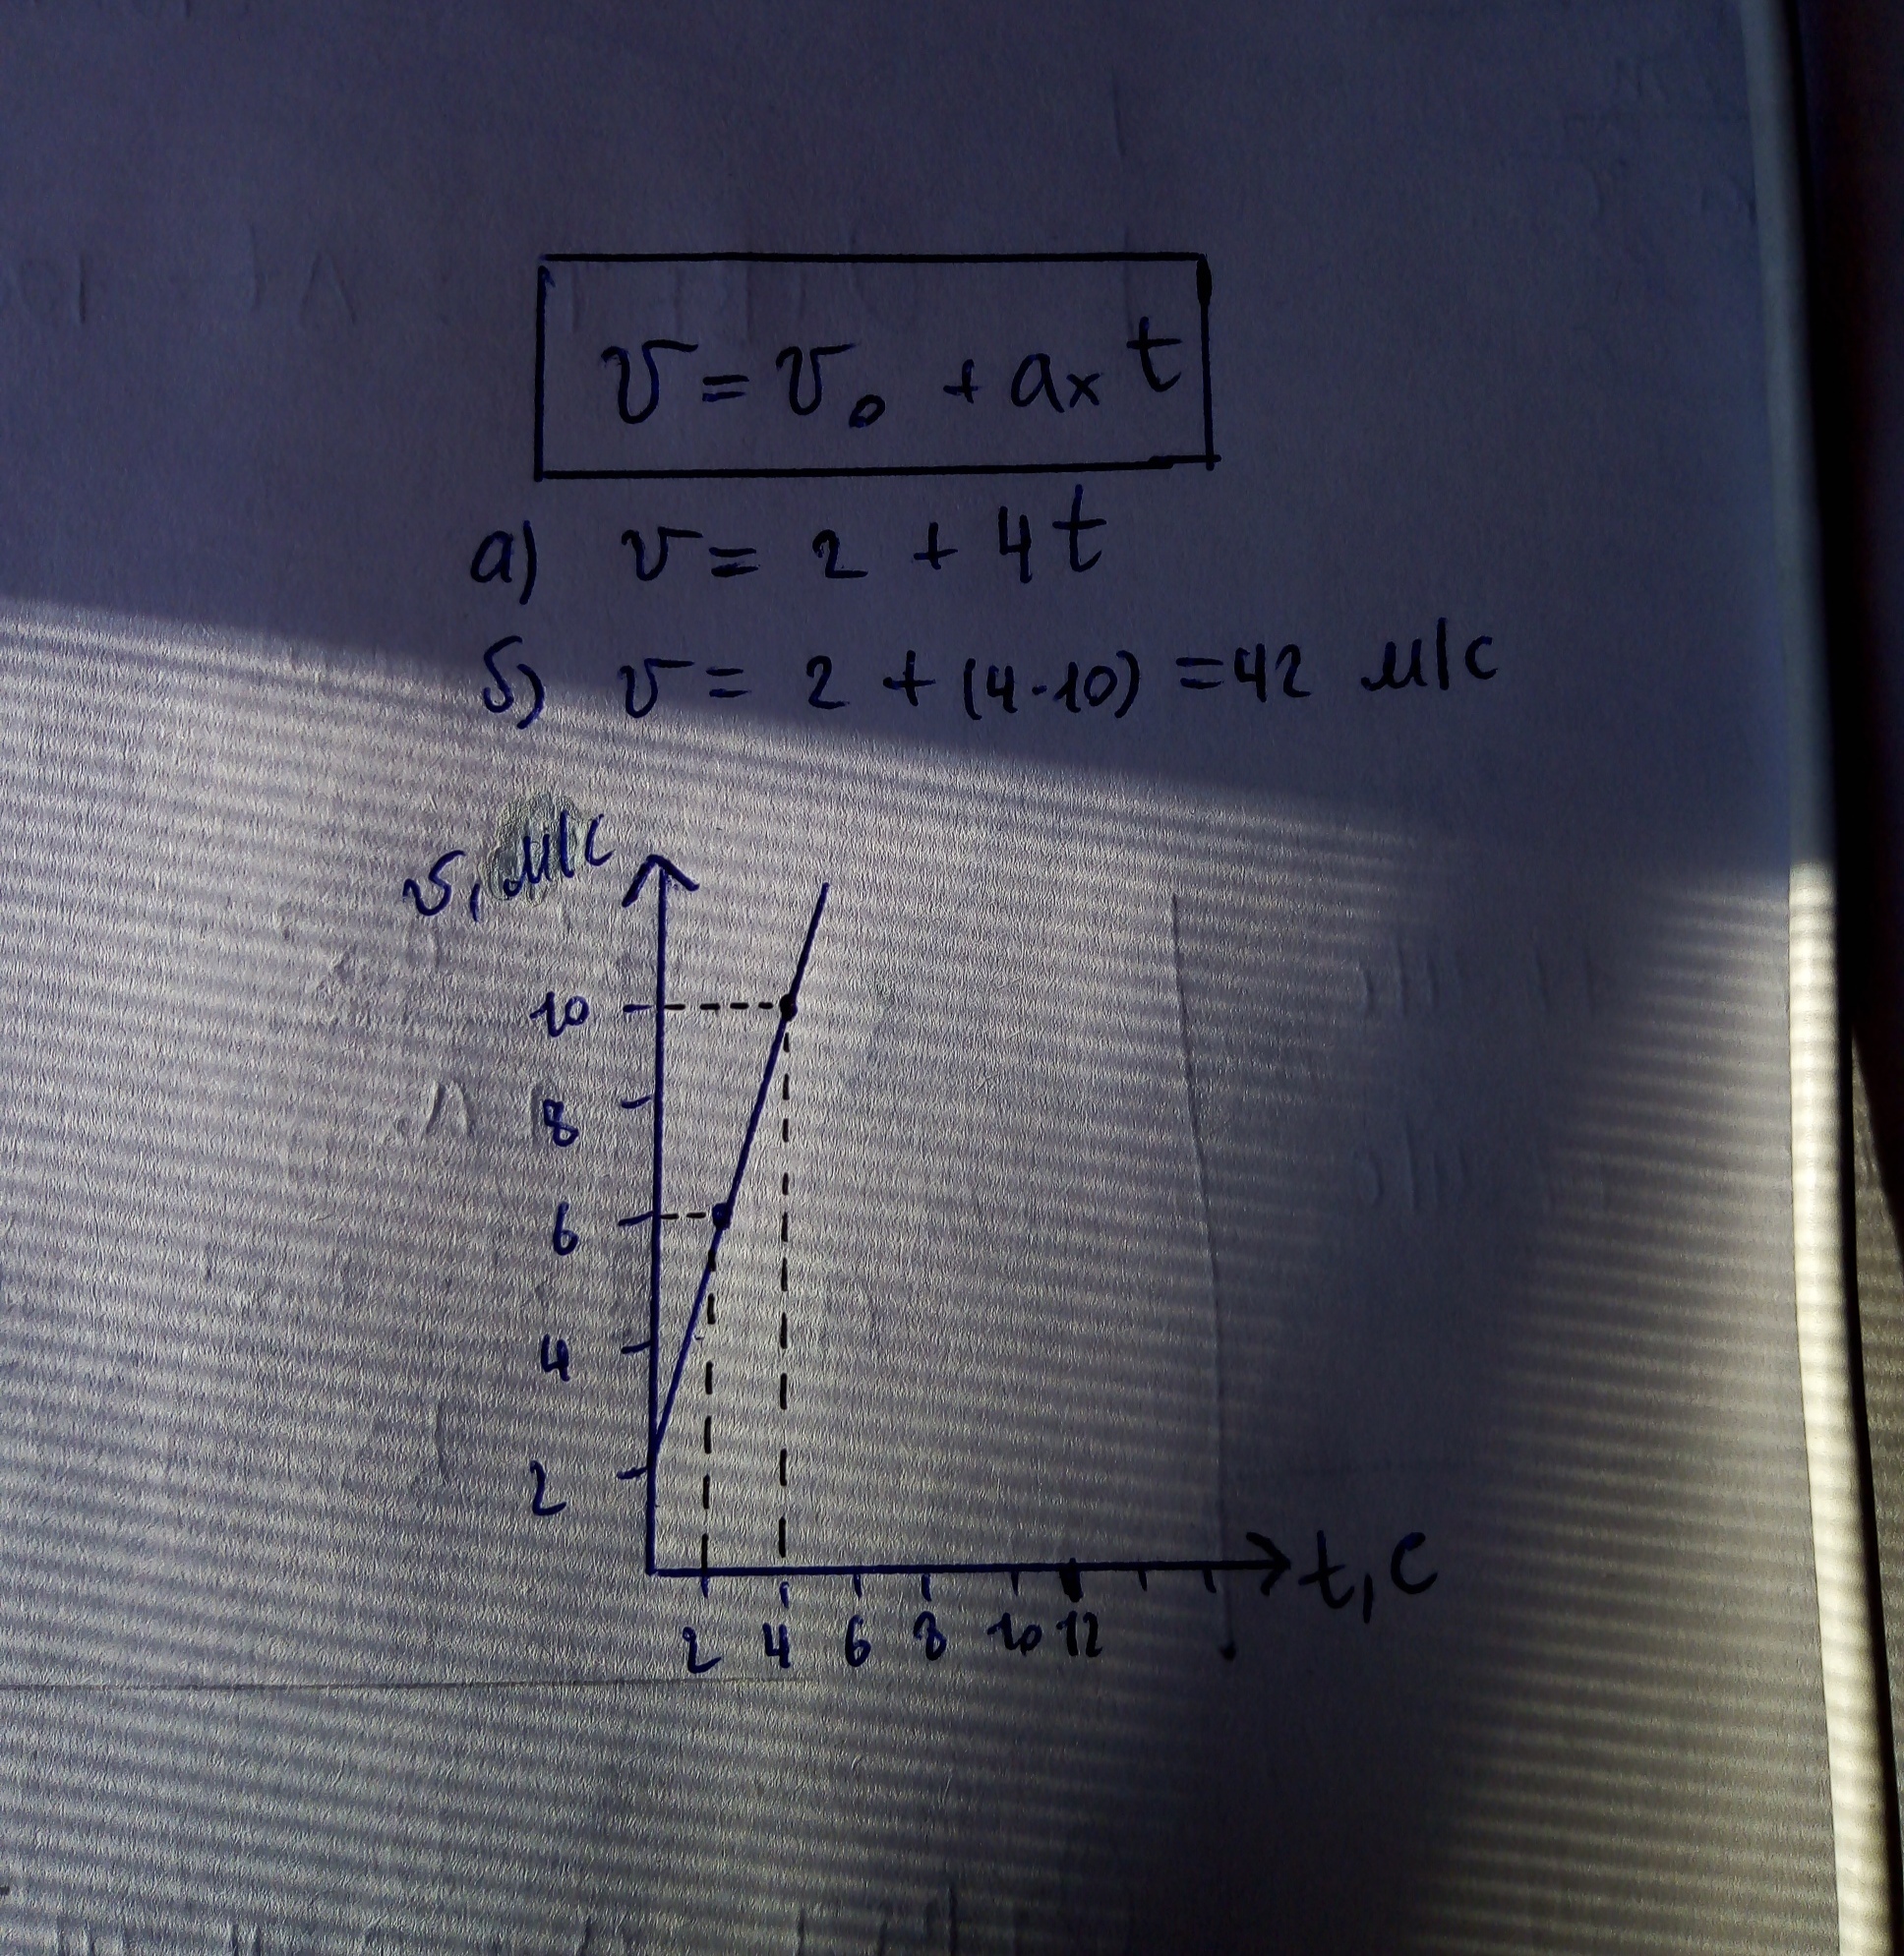 v = v₀ + aₓ t
а) v = 2 + 4t
б) v = 2 + (4·10) = 42 м/с
v, м/с
10
8
6
4
2
t, с
2 4 6 8 10 12